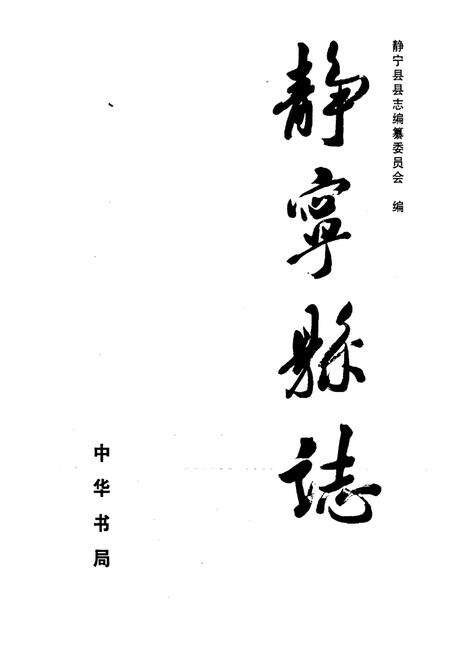 静宁县县志编纂委员会 编
静寧縣誌
中华书局